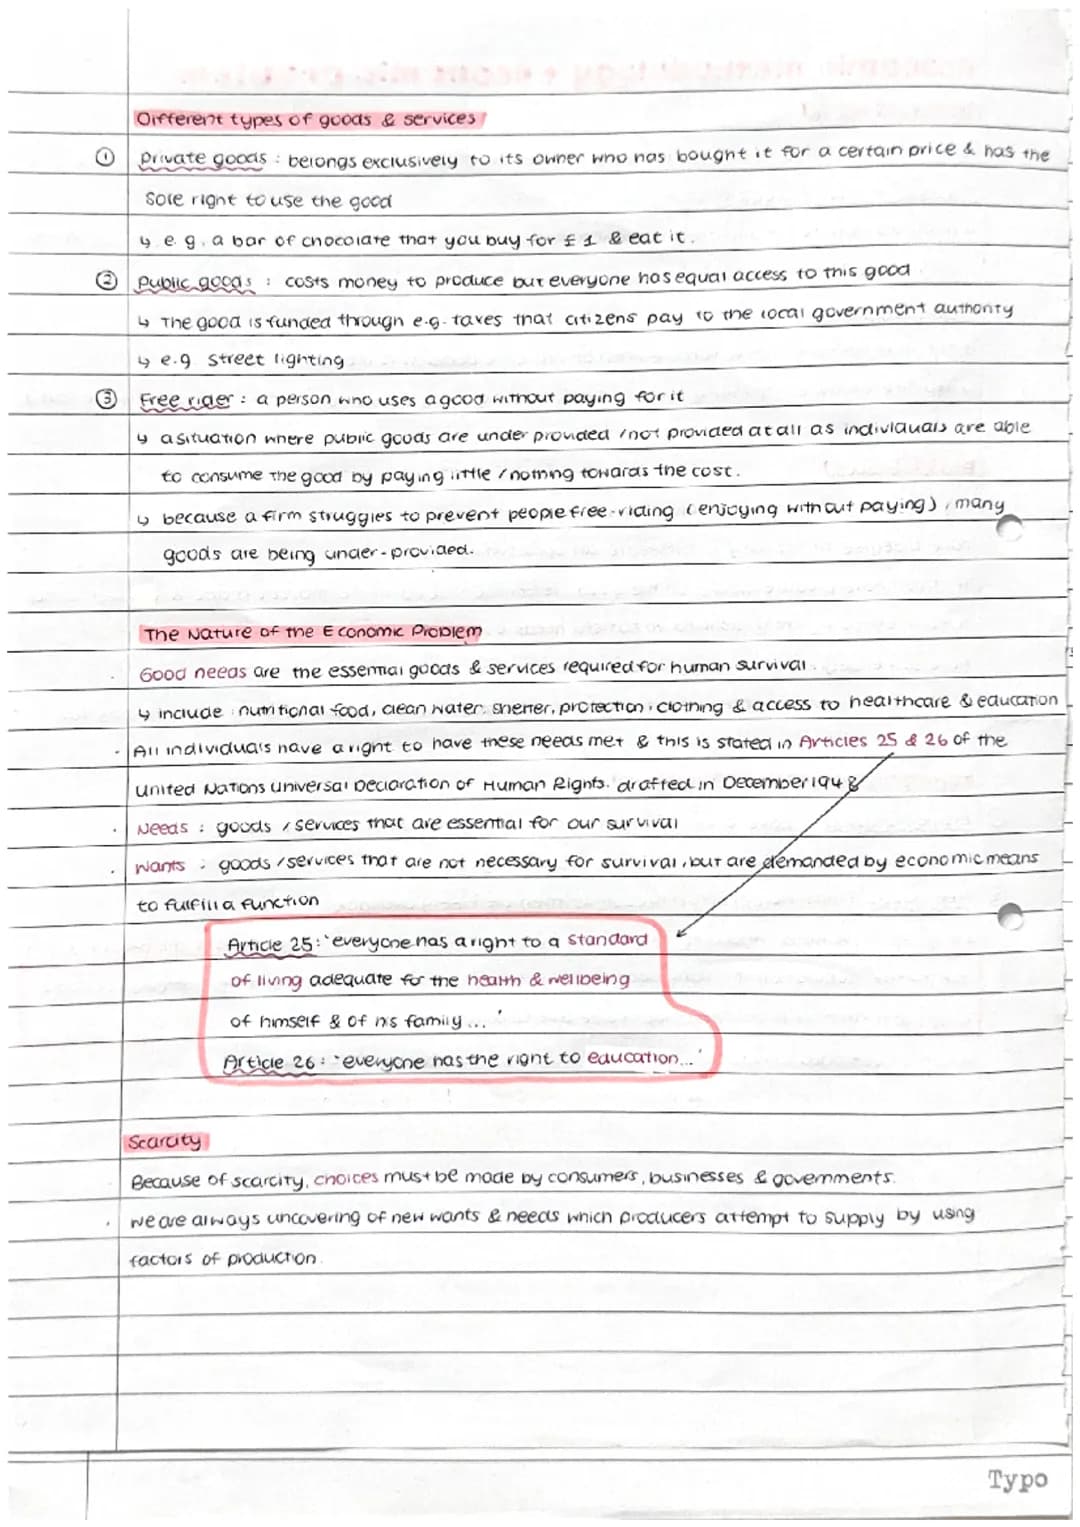 Different types of goods & services
① Private goods : belongs exclusively to its owner who has bought it for a certain price & has the
sole right to use the good
↳ e.g. a bar of chocolate that you buy for £1 & eat it.
② Public goods : costs money to produce but everyone has equal access to this good
↳ The good is funded through e.g. taxes that citizens pay to the local government authority
↳ e.g street lighting
③ Free rider : a person who uses a good without paying for it
↳ a situation where public goods are under provided / not provided at all as individuals are able
to consume the good by paying little / nothing towards the cost.
↳ because a firm struggles to prevent people free-riding (enjoying without paying), many
goods are being under-provided.
The Nature of the Economic Problem
· Good needs are the essential goods & services required for human survival.
↳ include nutritional food, clean water, shelter, protection, clothing & access to healthcare & education
· All individuals have a right to have these needs met & this is stated in Articles 25 & 26 of the
United Nations Universal Declaration of Human Rights. drafted in December 1948
· Needs : goods / services that are essential for our survival
· Wants : goods / services that are not necessary for survival, but are demanded by economic means
to fulfill a function
Article 25: 'everyone has a right to a standard
of living adequate for the health & wellbeing
of himself & of his family ...'
Article 26: 'everyone has the right to education...'
Scarcity
· Because of scarcity, choices must be made by consumers, businesses & governments.
· We are always uncovering of new wants & needs which producers attempt to supply by using
factors of production.
Typo